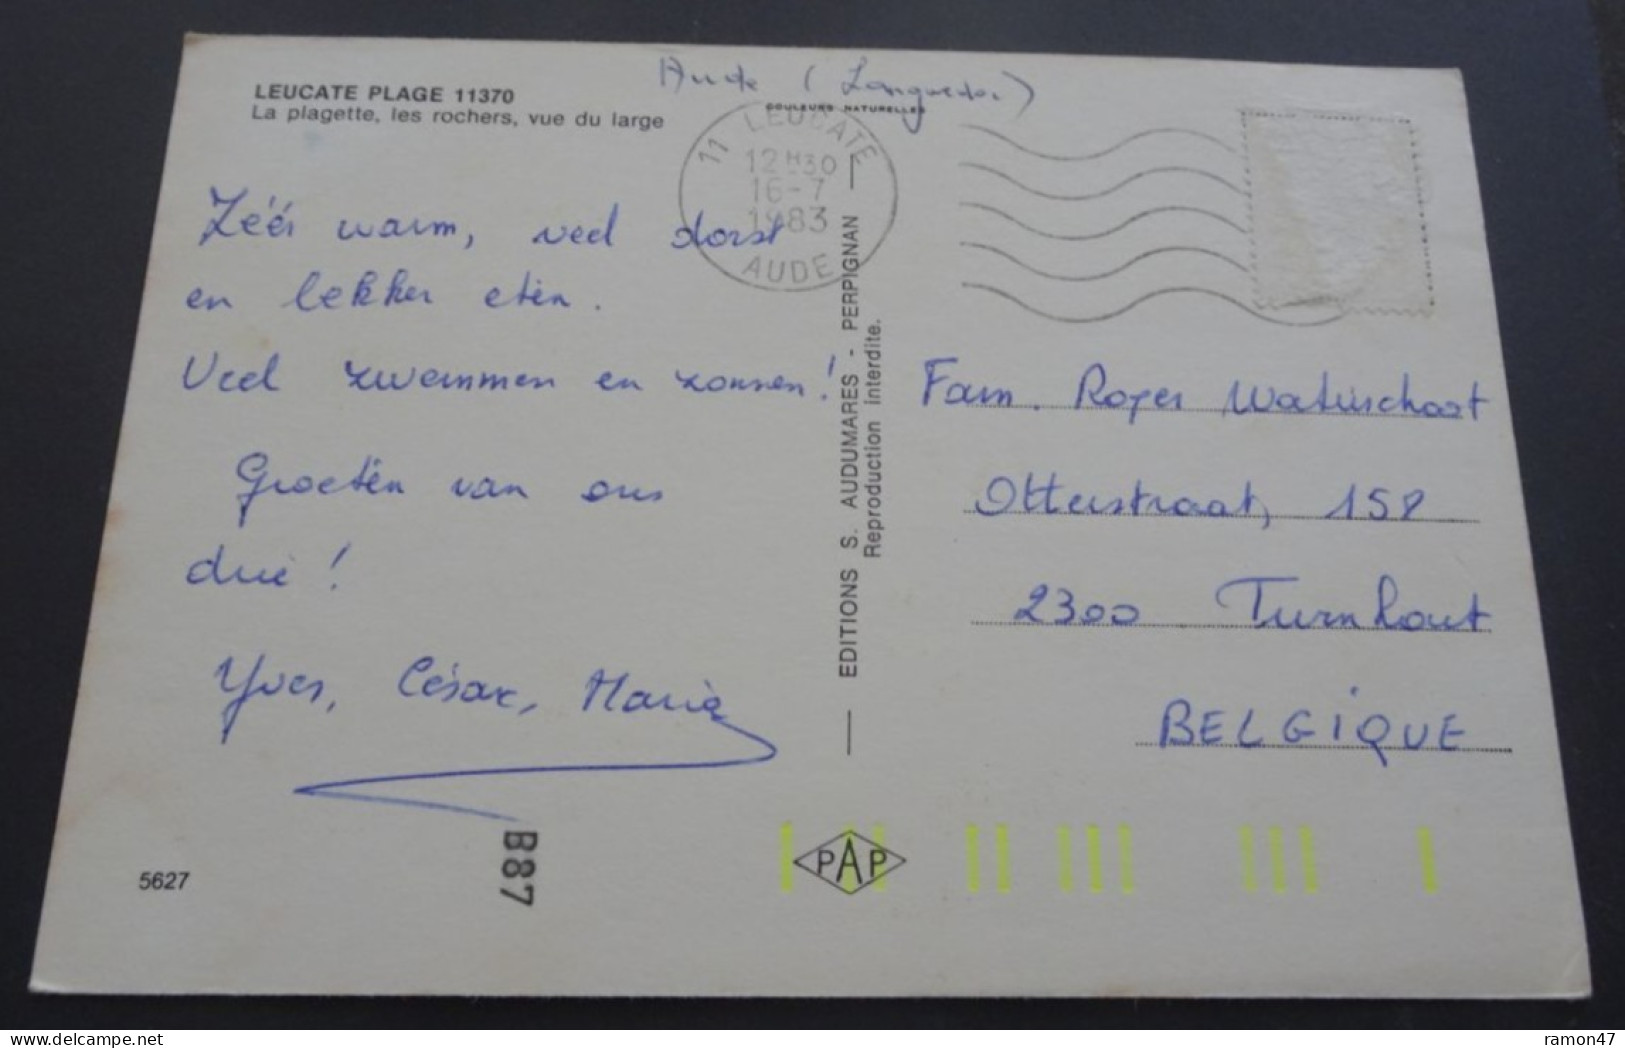 Aude (Languedoc)
LEUCATE PLAGE 11370
La plagette, les rochers, vue du large
COULEURS NATURELLES
11 LEUCATE
12H30
16-7
1983
AUDE
Zéér warm, veel dorst
en lekker eten.
Veel zwemmen en zonnen!
Groeten van ons
drie!
Yves, César, Maria
EDITIONS S. AUDUMARES - PERPIGNAN
Reproduction interdite.
Fam. Roger Waterschoot
Otterstraat, 158
2300 Turnhout
BELGIQUE
B87
PAP
5627
ramon47